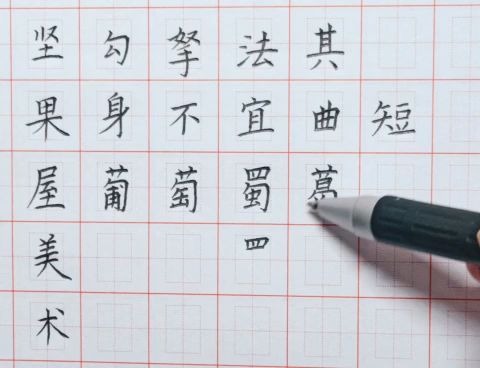 坚勾法其
果身不宜曲短
屋葡萄蜀葛
美罒
术